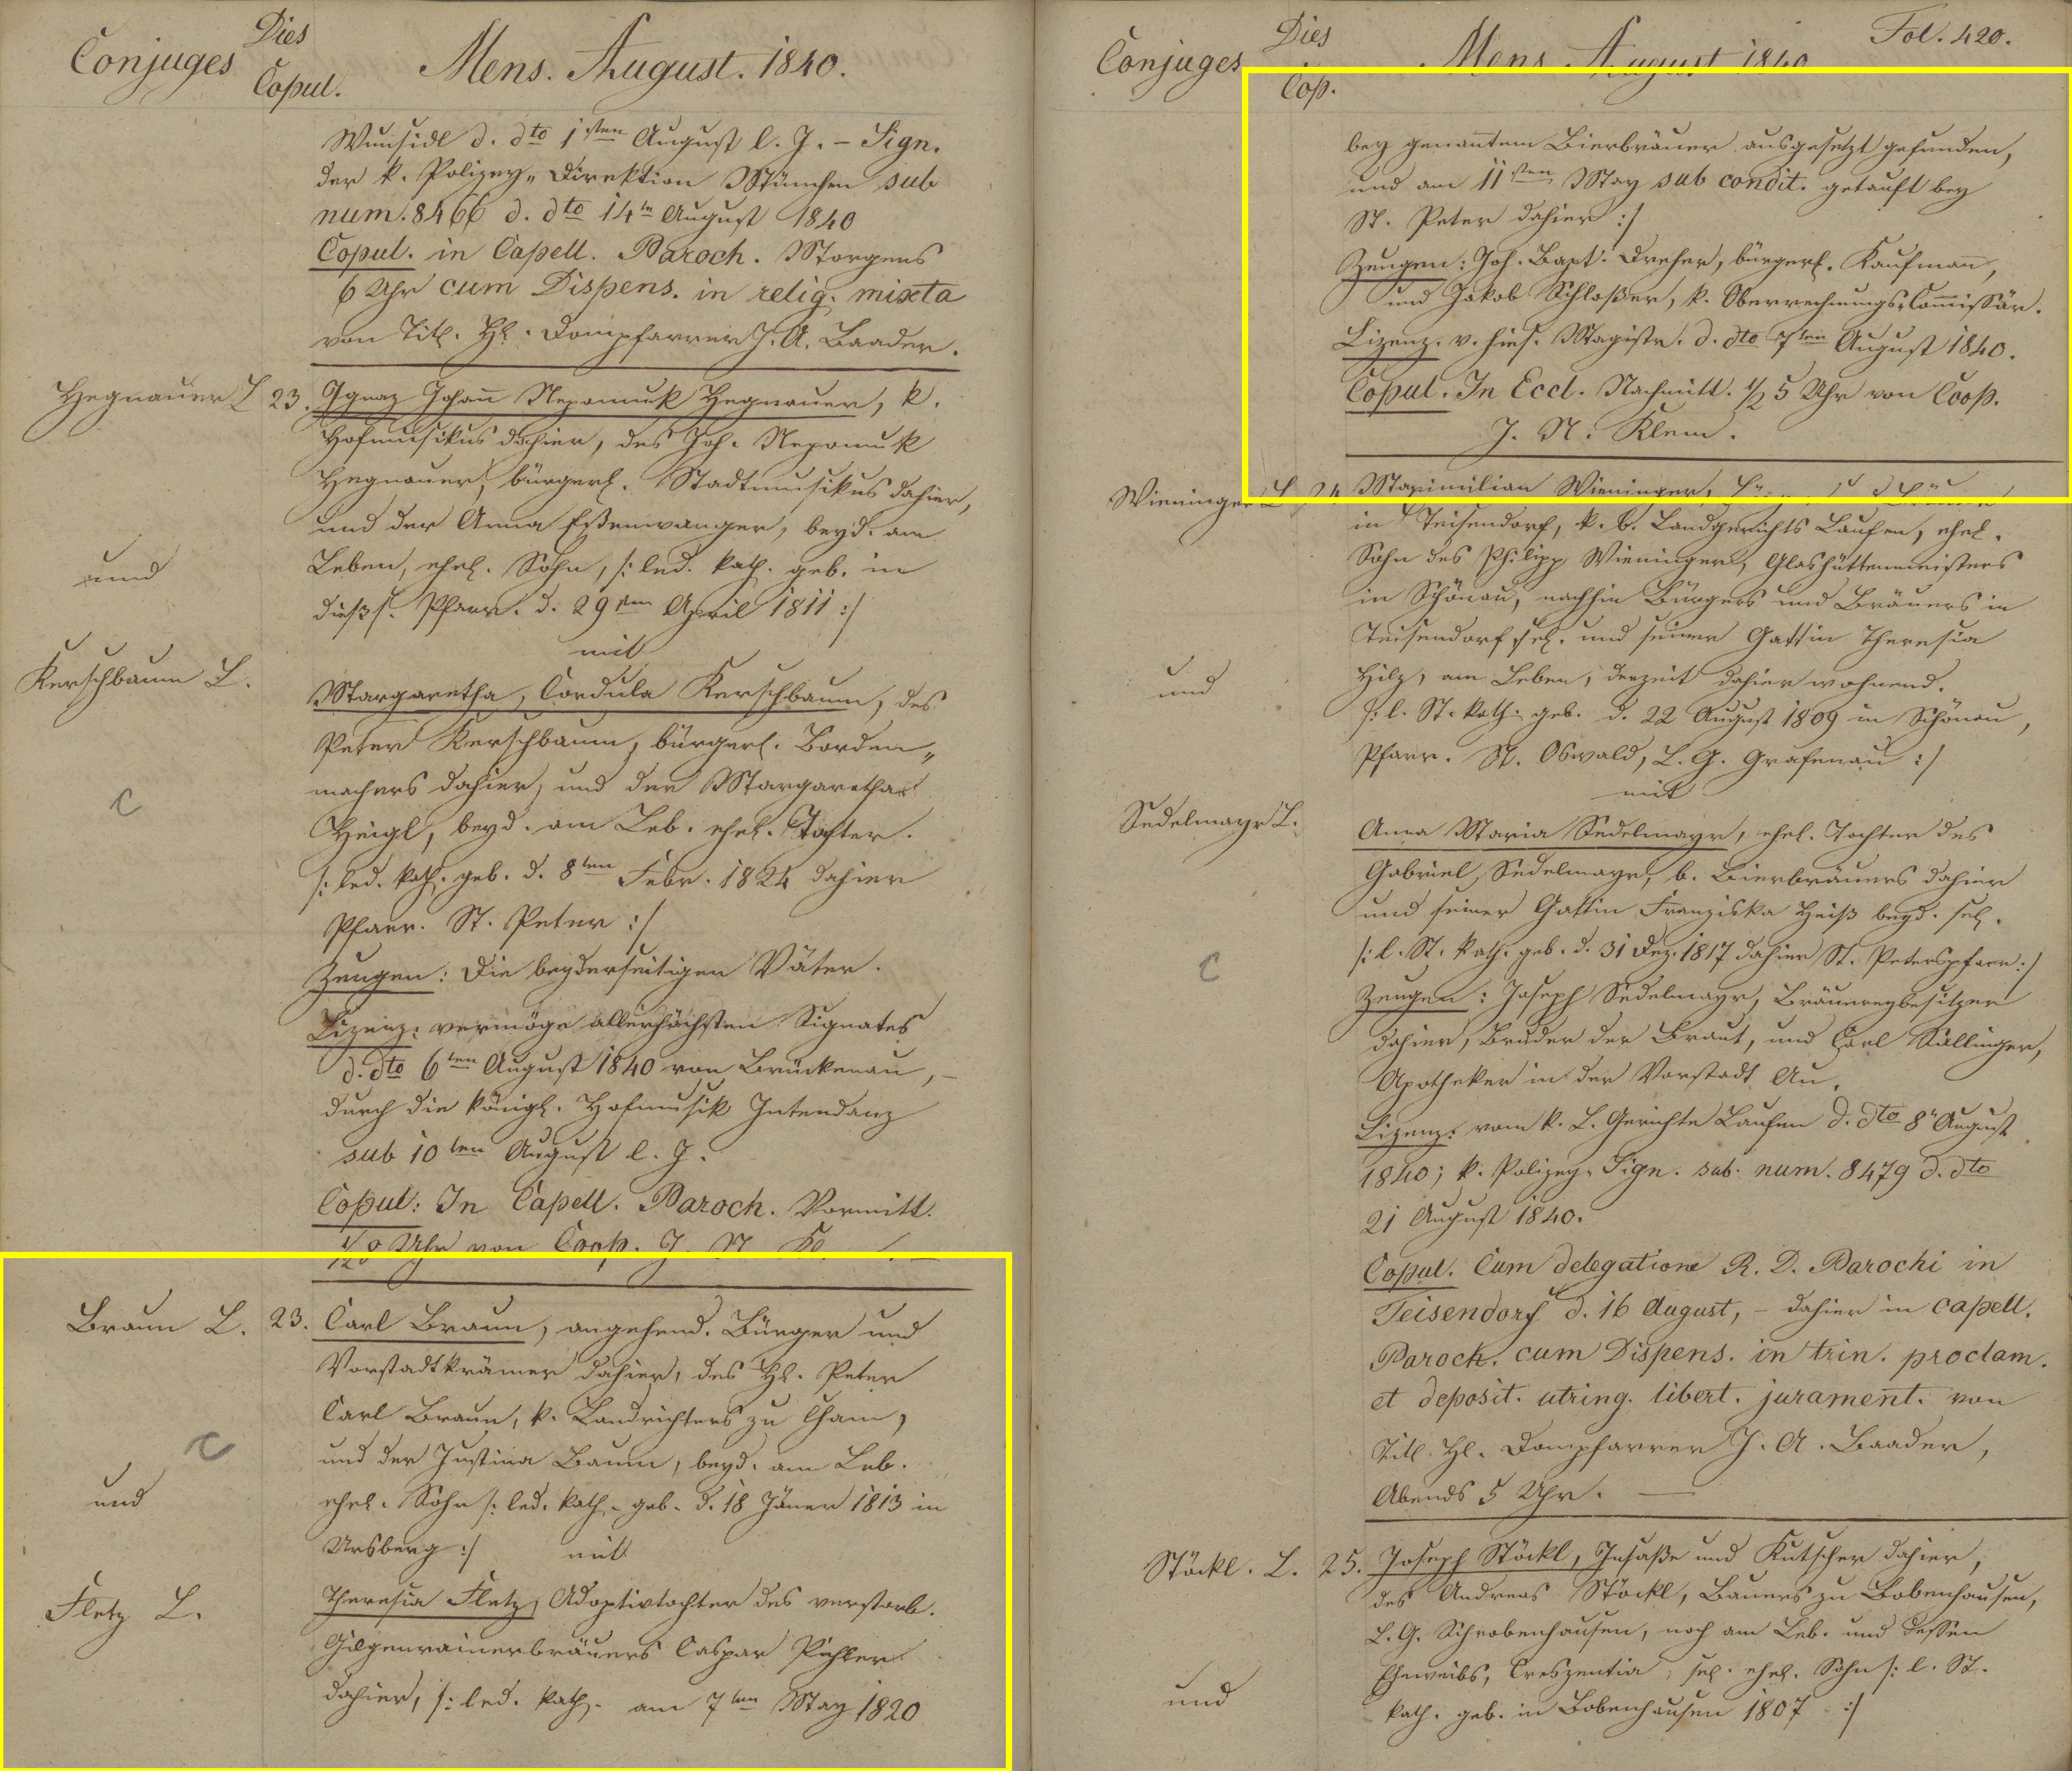 Conjuges
Dies
Copul.
Mens. August. 1840.
Wunsidl d. dto 1sten August l. J. – Sign.
der k. Polizey„ Direktion München sub
num. 8466 d. dto 14tn August 1840
Copul. in Capell. Paroch. Morgens
6 Uhr cum Dispens. in relig. mixta
von Titl. Hl. Dompfarrer J. A. Baader.
Hegnauer L
23. Ignaz Johañ Nepomuk Hegnauer, k.
Hofmusikus dahier, des Joh. Nepomuk
Hegnauer, bürgerl. Stadtmusikus dahier,
und der Anna Eßenwanger, beyd. am
Leben, ehel. Sohn, /: led. kath. geb. in
und
dießs. Pfarr. d. 29sten April 1811 :/
mit
Kerschbaum L.
Margaretha, Cordula Kerschbaum, des
Peter Kerschbaum, bürgerl. Borden„
machers dahier, und der Margaretha
C
Heigl, beyd. am Leb. ehel. Tochter.
/: led. kath. geb. d. 8ten Febr. 1824 dahier
Pfarr. St. Peter :/
Zeugen: Die beyderseitigen Väter.
Lizenz: vermöge allerhöchsten Signates
d. dto 6ten August 1840 von Brückenau, –
durch die königl. Hofmusik Intendanz
sub 10ten August l. J.
Copul: In Capell. Paroch. Vormitt.
Uhr von Coop. J. N.
Braun L.
23. Carl Braun, angehend. Bürger und
Vorstadtkrämer dahier, des Hl. Peter
Carl Braun, k. Landrichters zu Cham,
C
und der Justina Baum, beyd. am Leb.
und
ehel. Sohn /: led. kath. geb. d. 18 Jäner 1813 in
Ursberg :/ mit
Fletz L.
Theresia Fletz, Adoptivtochter des verstorb.
Gilgenrainerbräuers Caspar Pichler
dahier, /: led. kath. am 7ten May 1820
Conjuges
Dies
Cop.
Mens August 1840
Fol. 420.
bey genañtem Bierbräuer ausgesetzt gefunden,
und am 11ten May sub condit. getauft bey
St. Peter dahier :/
Zeugen: Joh. Bapt. Dreher, bürgerl. Kaufmañ,
und Jakob Schloßer, k. Oberrechnungs-Com̄issär.
Lizenz. v. hies. Magistr. d. dto 7ten August 1840.
Copul. In Eccl. Nachmitt. ½ 5 Uhr von Coop.
J. N. Klem.
Wieninger L
24 Maximilian Wieninger,
in Teisendorf, k. b. Landgerichts Laufen, ehel.
Sohn des Philipp Wieninger, Glashüttenmeisters
in Schönau, nachhin Bürgers und Bräuers in
Teisendorf sel. und seiner Gattin Theresia
und
Hilz, am Leben, derzeit dahier wohnend.
/: l. St. kath. geb. d. 22 August 1809 in Schönau,
Pfarr. St. Oswald, L. G. Grafenau :/
mit
Sedelmayr L.
Anna Maria Sedelmayr, ehel. Tochter des
Gabriel Sedelmayr, b. Bierbräuers dahier
und seiner Gattin Franziska Heiß beyd. sel.
C
/: l. St. kath. geb. d. 31 Dez. 1817 dahier St. Peterspfarr :/
Zeugen: Joseph Sedelmayr, Bräuereybesitzer
dahier, Bruder der Braut, und Carl Sallinger,
Apotheker in der Vorstadt Au.
Lizenz: vom k. L. Gerichte Laufen d. dto 8n August
1840; k. Polizey„ Sign. sub. num. 8479 d. dto
21 August 1840.
Copul. Cum delegatione R. D. Parochi in
Teisendorf d. 16 August, – dahier in capell.
Paroch. cum Dispens. in trin. proclam.
et deposit. utring. libert. jurament. von
Titl. Hl. Dompfarrer J. A. Baader,
Abends 5 Uhr. —
Stöckl. L.
25. Joseph Stöckl, Insaße und Kutscher dahier,
des Andreas Stöckl, Bauers zu Bobenhausen,
L. G. Schrobenhausen, noch am Leb. und dessen
Eheweibs, Creszentia, sel. ehel. Sohn /: l. St.
und
kath. geb. in Bobenhausen 1807 :/